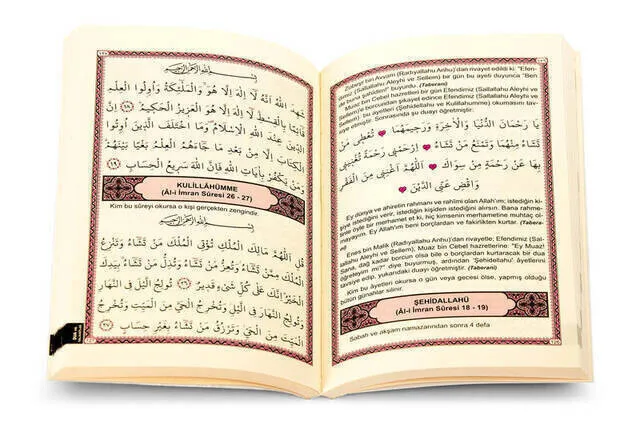 Zübeyr bin Avvam (Radıyallahu Anhu)'dan rivayet edildi ki: "Efen-
dimiz (Sallallahu Aleyhi ve Sellem) bir gün bu ayeti duyunca "Ben
de buna şahidim!" buyurdu. (Taberani)
Muaz bin Cebel hazretleri bir gün Efendimiz (Sallallahu Aleyhi ve
Sellem)'e borcundan şikayet edince Efendimiz (Sallallahu Aleyhi ve
Sellem), şu ayetleri (Şehidellahu ve Kulillahumme) okumasını tav-
siye etmiştir. Sonrasında şu duayı öğretmiştir:
يَا رَحْمَانَ الدُّنْيَا وَالْآخِرَةِ وَرَحِيمَهُمَا ♥ تُعْطِي مَنْ
تَشَاءُ مِنْهُمَا وَتَمْنَعُ مَنْ تَشَاءُ ♥ اِرْحَمْنِي رَحْمَةً تُغْنِينِي
بِهَا عَنْ رَحْمَةِ مَنْ سِوَاكَ ♥ اَللّٰهُمَّ اَغْنِنِي مِنَ الْفَقْرِ
وَاقْضِ عَنِّي الدَّيْنَ ♥
Ey dünya ve ahiretin rahmanı ve rahîmi olan Allah'ım; istediğin ki-
şiye verirsin, istediğin kişiden istediğini alırsın. Bana rahme-
tinle öyle bir merhamet et ki, hiç kimsenin merhametine muhtaç ol-
mayayım. Ey Allah'ım beni borçlardan ve fakirlikten kurtar. (Taberani)
Enes bin Malik (Radıyallahu Anhu)'dan rivayetle; Efendimiz (Sal-
lallahu Aleyhi ve Sellem), Muaz bin Cebel hazretlerine: "Ey Muaz!
Sana, dağ kadar borcun olsa bile o borçlardan kurtaracak bir dua
öğreteyim mi?" diye buyurmuş, ardından "Şehidellahu" ayetlerini
tavsiye edip, yukarıdaki duayı öğretmiştir. (Taberani)
Kim bu âyetleri okursa o gün veya gecesi ölse, yapmış olduğu
bütün günahlar silinir.
ŞEHİDALLAHÜ
(Âl-i İmran Sûresi 18 - 19)
Sabah ve akşam namazarından sonra 4 defa
بِسْمِ اللّٰهِ الرَّحْمٰنِ الرَّحِيمِ
شَهِدَ اللّٰهُ اَنَّهُ لَا اِلٰهَ اِلَّا هُوَ وَالْمَلٰئِكَةُ وَاُولُوا الْعِلْمِ
قَائِمًا بِالْقِسْطِ لَا اِلٰهَ اِلَّا هُوَ الْعَزِيزُ الْحَكِيمُ ﴿١٨﴾ اِنَّ
الدِّينَ عِنْدَ اللّٰهِ الْاِسْلَامُ وَمَا اخْتَلَفَ الَّذِينَ اُوتُوا
الْكِتَابَ اِلَّا مِنْ بَعْدِ مَا جَاءَهُمُ الْعِلْمُ بَغْيًا بَيْنَهُمْ
وَمَنْ يَكْفُرْ بِاٰيَاتِ اللّٰهِ فَاِنَّ اللّٰهَ سَرِيعُ الْحِسَابِ ﴿١٩﴾
KULİLLÂHÜMME
(Âl-i İmran Sûresi 26 - 27)
Kim bu sûreyi okursa o kişi gerçekten zengindir.
بِسْمِ اللّٰهِ الرَّحْمٰنِ الرَّحِيمِ
قُلِ اللّٰهُمَّ مَالِكَ الْمُلْكِ تُؤْتِي الْمُلْكَ مَنْ تَشَاءُ وَتَنْزِعُ
الْمُلْكَ مِمَّنْ تَشَاءُ وَتُعِزُّ مَنْ تَشَاءُ وَتُذِلُّ مَنْ تَشَاءُ بِيَدِكَ
الْخَيْرُ اِنَّكَ عَلٰى كُلِّ شَيْءٍ قَدِيرٌ ﴿٢٦﴾ تُولِجُ الَّيْلَ فِي النَّهَارِ
وَتُولِجُ النَّهَارَ فِي الَّيْلِ وَتُخْرِجُ الْحَيَّ مِنَ الْمَيِّتِ وَتُخْرِجُ
الْمَيِّتَ مِنَ الْحَيِّ وَتَرْزُقُ مَنْ تَشَاءُ بِغَيْرِ حِسَابٍ ﴿٢٧﴾